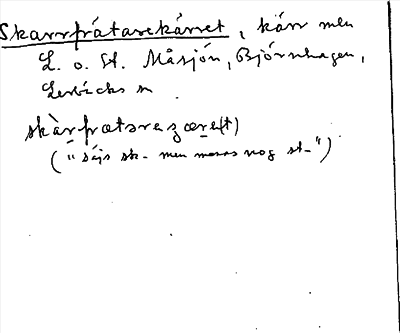 Skarrfråtarekärret, kärr mell
L. o. St. Måsjön, Björnhagen,
Lerbäcks sn.
skàrfrɑtɑrɛʒærɛ(t)
("säjs sk- men menas nog st-")